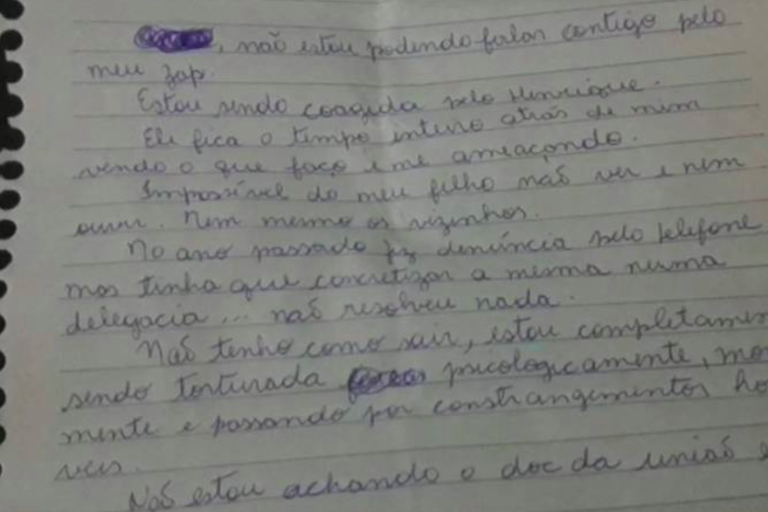 , não estou podendo falar contigo pelo
meu zap.
Estou sendo coagida pelo Henrique.
Ele fica o tempo inteiro atrás de mim
vendo o que faço e me ameaçando.
Impossível do meu filho não ver e nem
ouvir. Nem mesmo os vizinhos.
No ano passado fiz denúncia pelo telefone
mas tinha que concretizar a mesma numa
delegacia... não resolveu nada.
Não tenho como sair, estou completamen
sendo torturada psicologicamente, mo
mente e passando por constrangimentos ho
veis.
Não estou achando o doc da união e